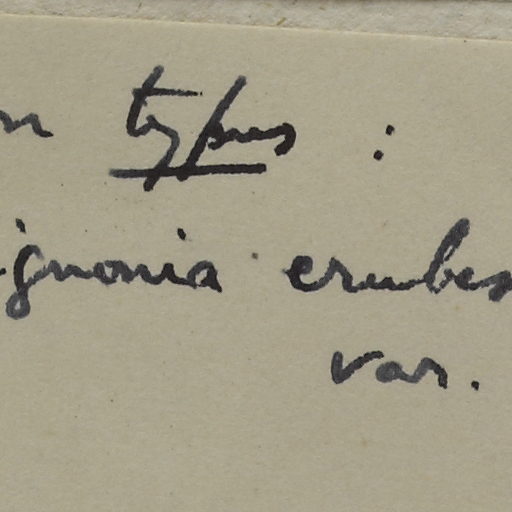 n typus :
ignonia erubes
var.